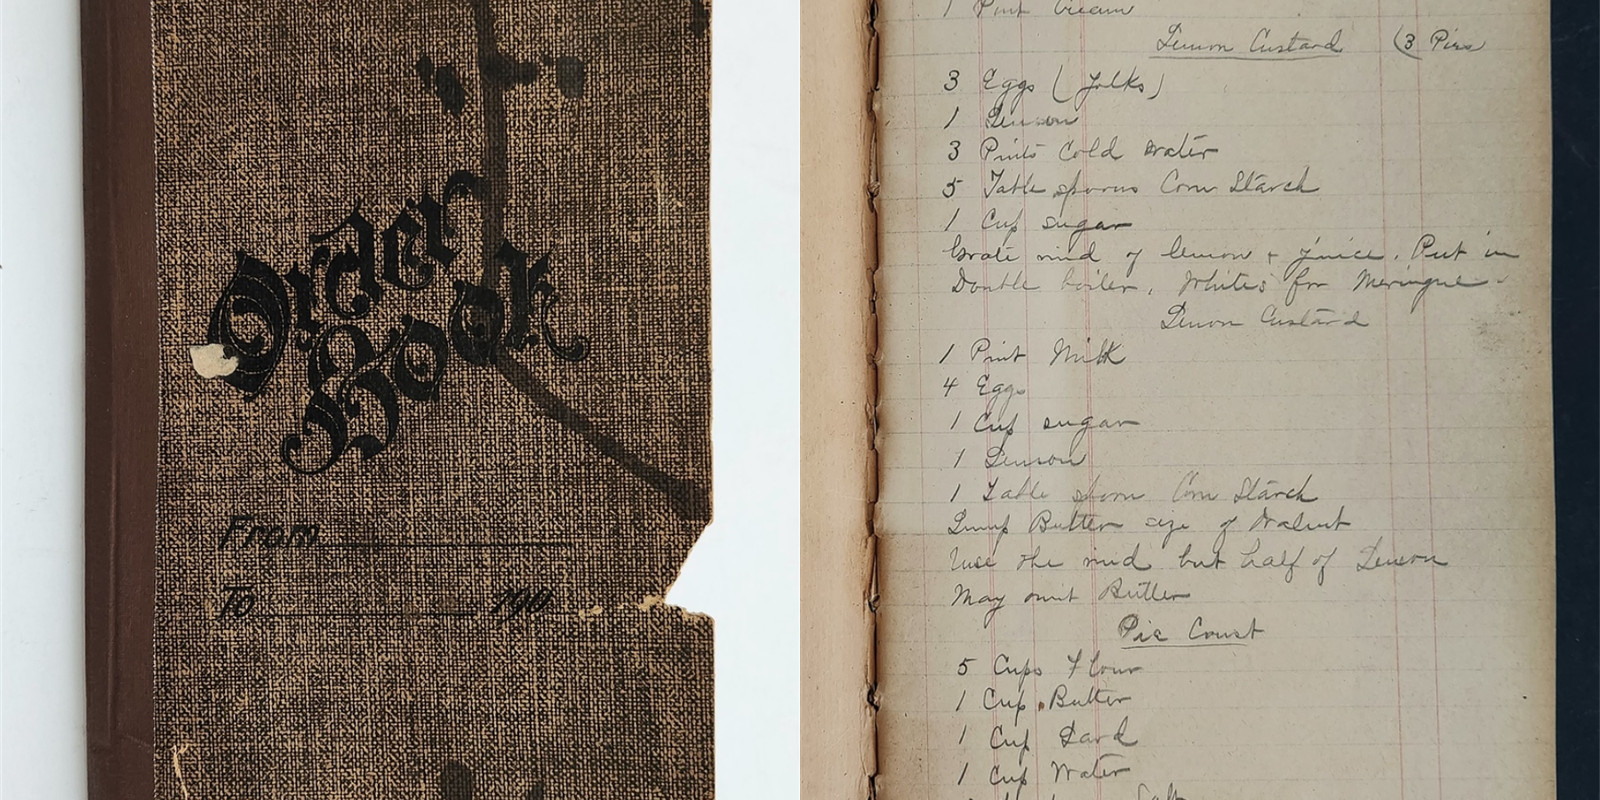 Order
Book
From
To 190
1 Pint Cream
Lemon Custard (3 Pies
3 Eggs (Yolks)
1 Lemon
3 Pints Cold water
5 Table spoons Corn Starch
1 Cup sugar
Grate rind of lemon + juice. Put in
Double boiler. Whites for Meringue
Lemon Custard
1 Pint Milk
4 Eggs
1 Cup sugar
1 Lemon
1 Table spoon Corn Starch
Lump Butter size of Walnut
Use the rind but half of Lemon
May omit Butter
Pie Coust
5 Cups Flour
1 Cup Butter
1 Cup Lard
1 Cup Water
Salt